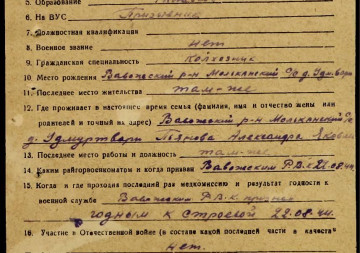 5. Образование
6. На ВУС Призывник
7. Должностная квалификация
8. Военное звание нет
9. Гражданская специальность Колхозник
10. Место рождения Вавожский р-н Мольканский с/с д. Удм.
11. Последнее место жительства там-же
12. Где проживает в настоящее время семья (фамилия, имя и отчество жены или
родителей и точный их адрес) Вавожский р-н Мольканский
д. Удмуртвари Александра
13. Последнее место работы и должность там-же
14. Каким райгорвоенкоматом и когда призван Вавожским РВК 22.08.44
15. Когда и где проходил последний раз медкомиссию и результат годности к
военной службе Вавожским РВК признан
годным к строевой 22.08.44.
16. Участие в Отечественной войне (в составе какой последней части и в качестве
нет.